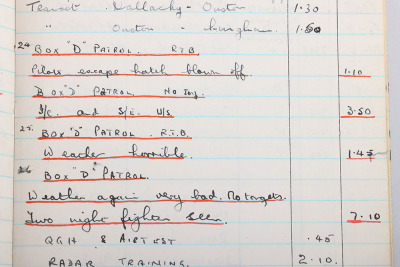 Transit. Hallachy - Ouston 1.30
" Ouston - 1.50
24 Box "D" PATROL. R.T.B.
Pilots escape hatch blown off. 1.10
Box "D" PATROL No Joy.
I/C. and S/E. U/S 3.50
25. Box "D" PATROL. R.T.B.
Weather horrible. 1.45
26 Box "D" PATROL.
Weather again very bad. No targets.
Two night fighters seen. 2.10
QGH & AIRTEST .45
RADAR TRAINING. 2.10.